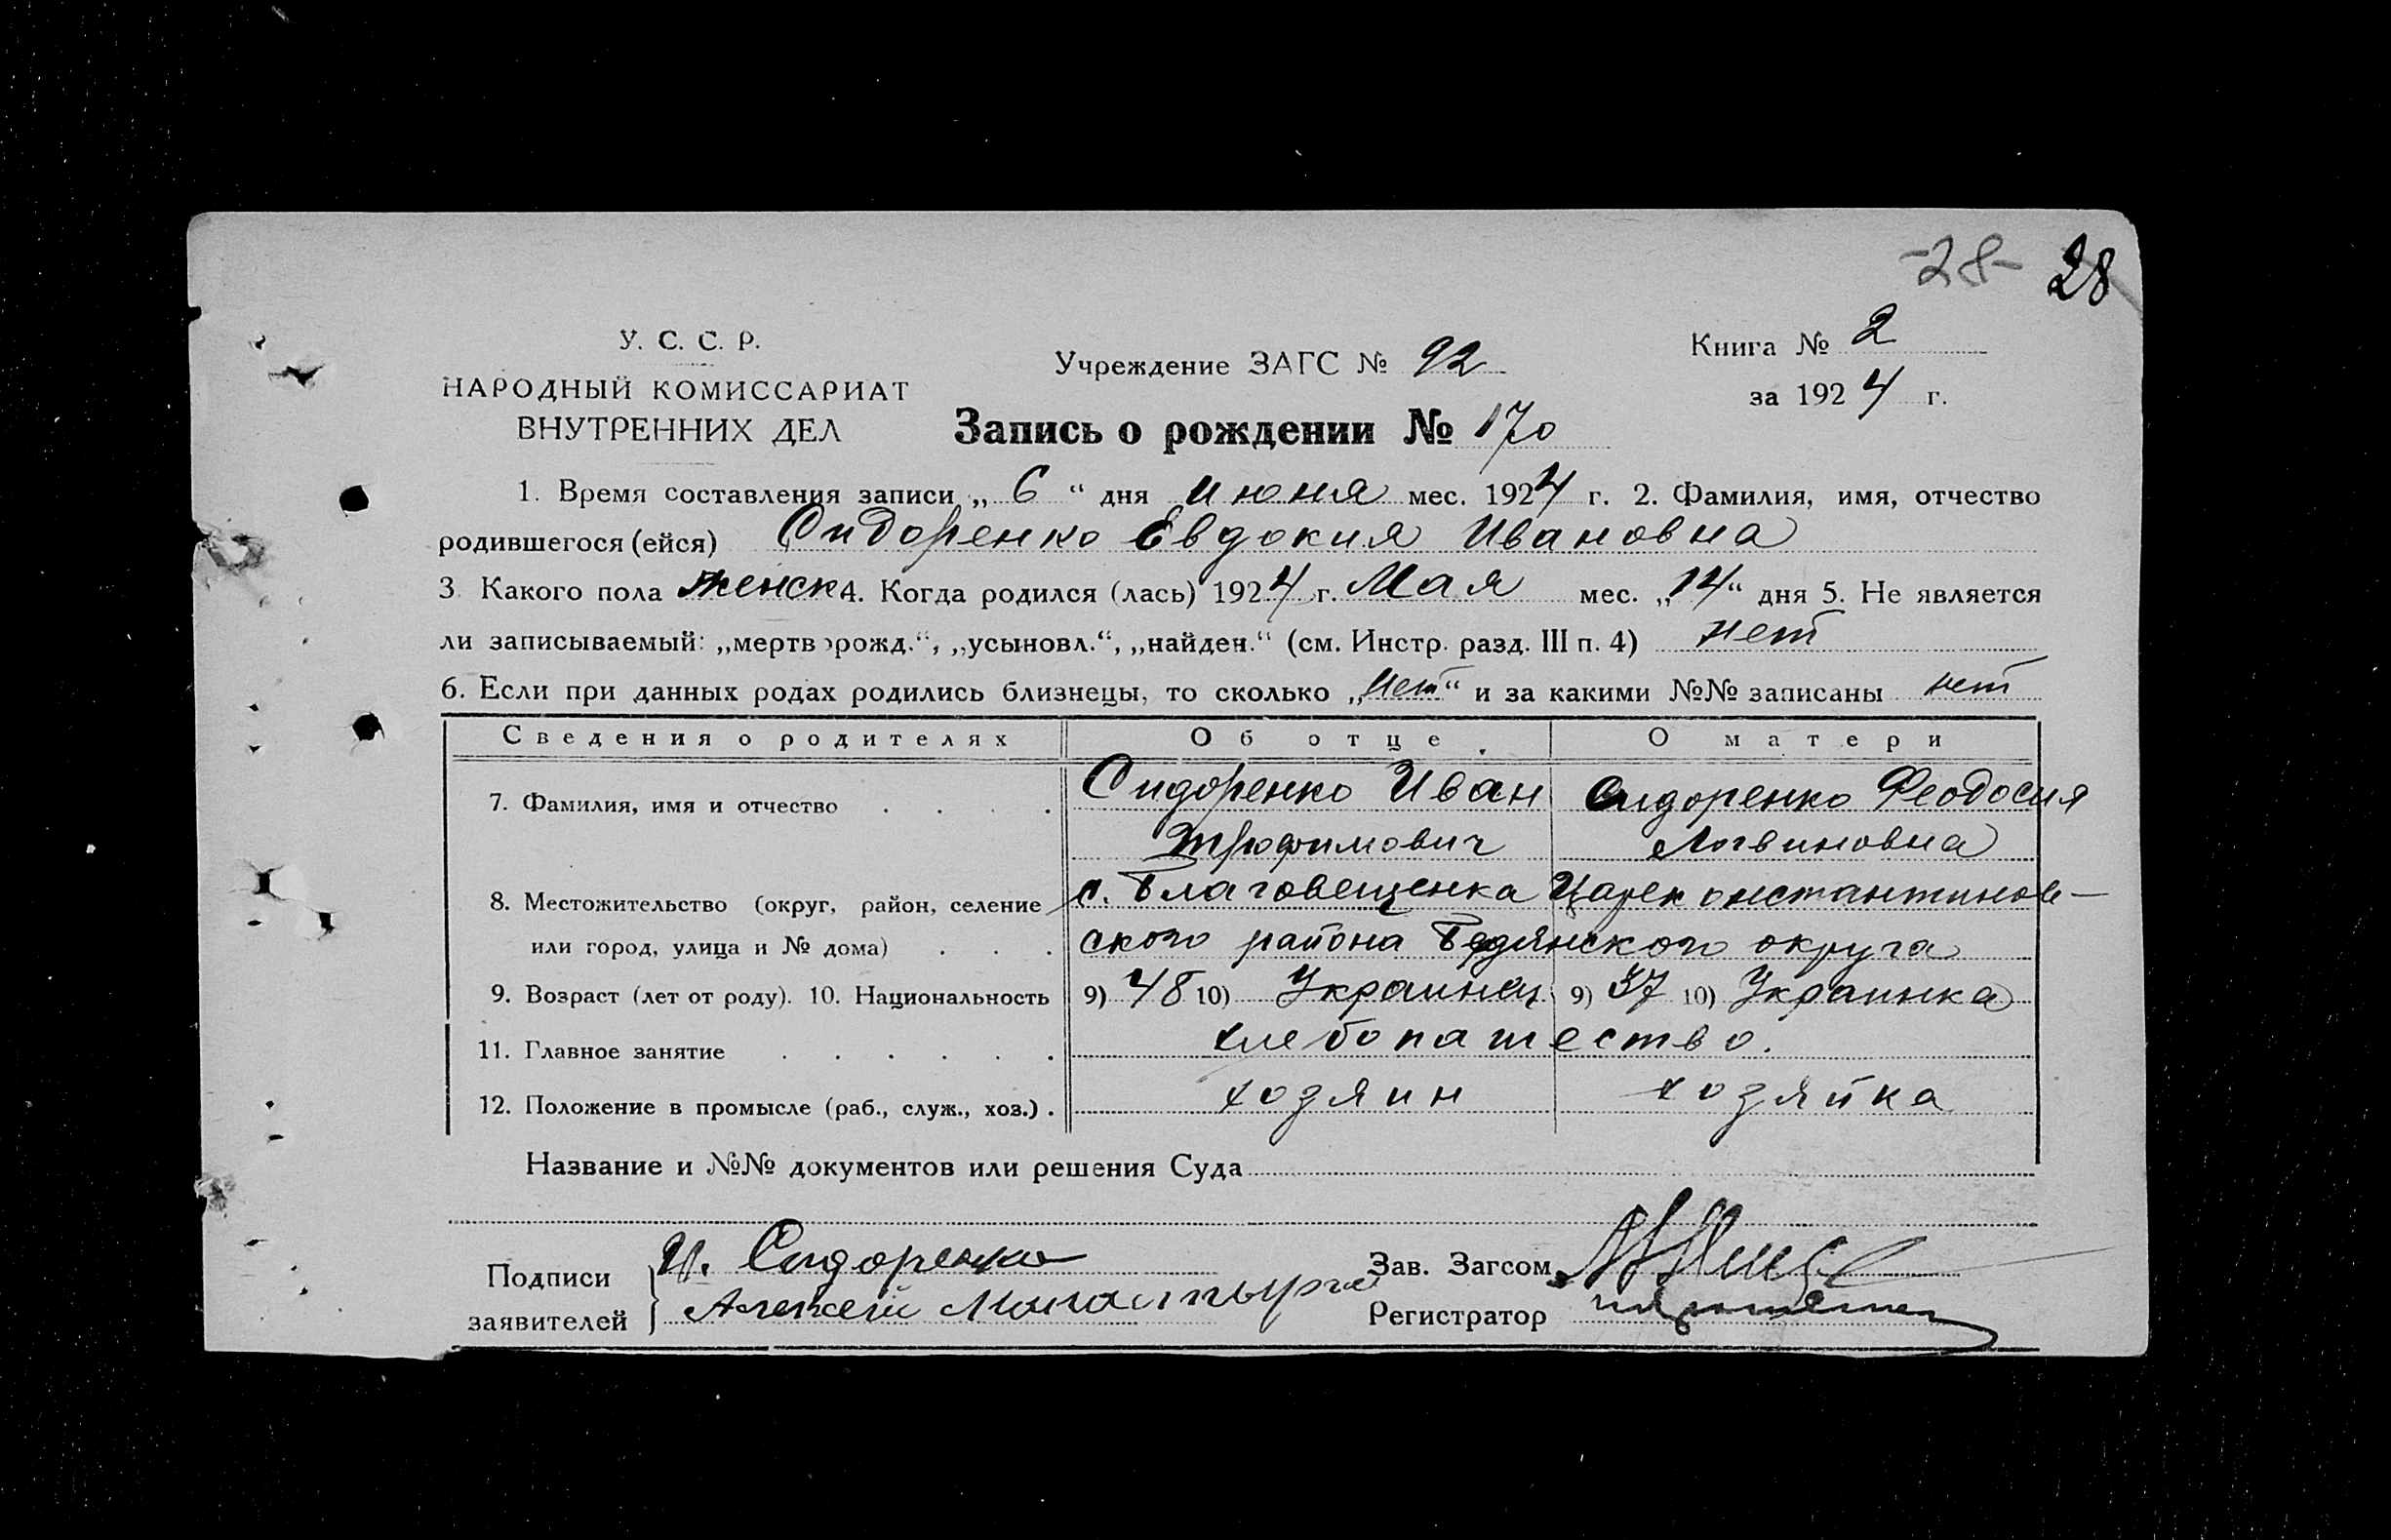 -28- 28
У. С. С. Р.
НАРОДНЫЙ КОМИССАРИАТ
ВНУТРЕННИХ ДЕЛ
Учреждение ЗАГС № 92
Книга № 2
за 1924 г.
Запись о рождении № 170
1. Время составления записи „ 6 “ дня июня мес. 1924 г. 2. Фамилия, имя, отчество
родившегося (ейся) Сидоренко Евдокия Ивановна
3 Какого пола женск 4. Когда родился (лась) 1924 г. Мая мес. „14“ дня 5. Не является
ли записываемый: „мертворожд.“, „усыновл.“, „найден.“ (см. Инстр. разд. III п. 4) нет
6. Если при данных родах родились близнецы, то сколько „нет“ и за какими №№ записаны нет
Сведения о родителях Об отце. О матери
7. Фамилия, имя и отчество . . . . Сидоренко Иван Сидоренко Феодосия
Трофимович Логвиновна
8. Местожительство (округ, район, селение с. Благовещенка Цареконстантинов-
или город, улица и № дома) . . . ского района Бердянского округа
9. Возраст (лет от роду). 10. Национальность 9) 48 10) Украинец 9) 37 10) Украинка
11. Главное занятие . . . . . . хлебопашество.
12. Положение в промысле (раб., служ., хоз.) . хозяин хозяйка
Название и №№ документов или решения Суда
Подписи заявителей } И. Сидоренко
Алексей Монастырев
Зав. Загсом
Регистратор